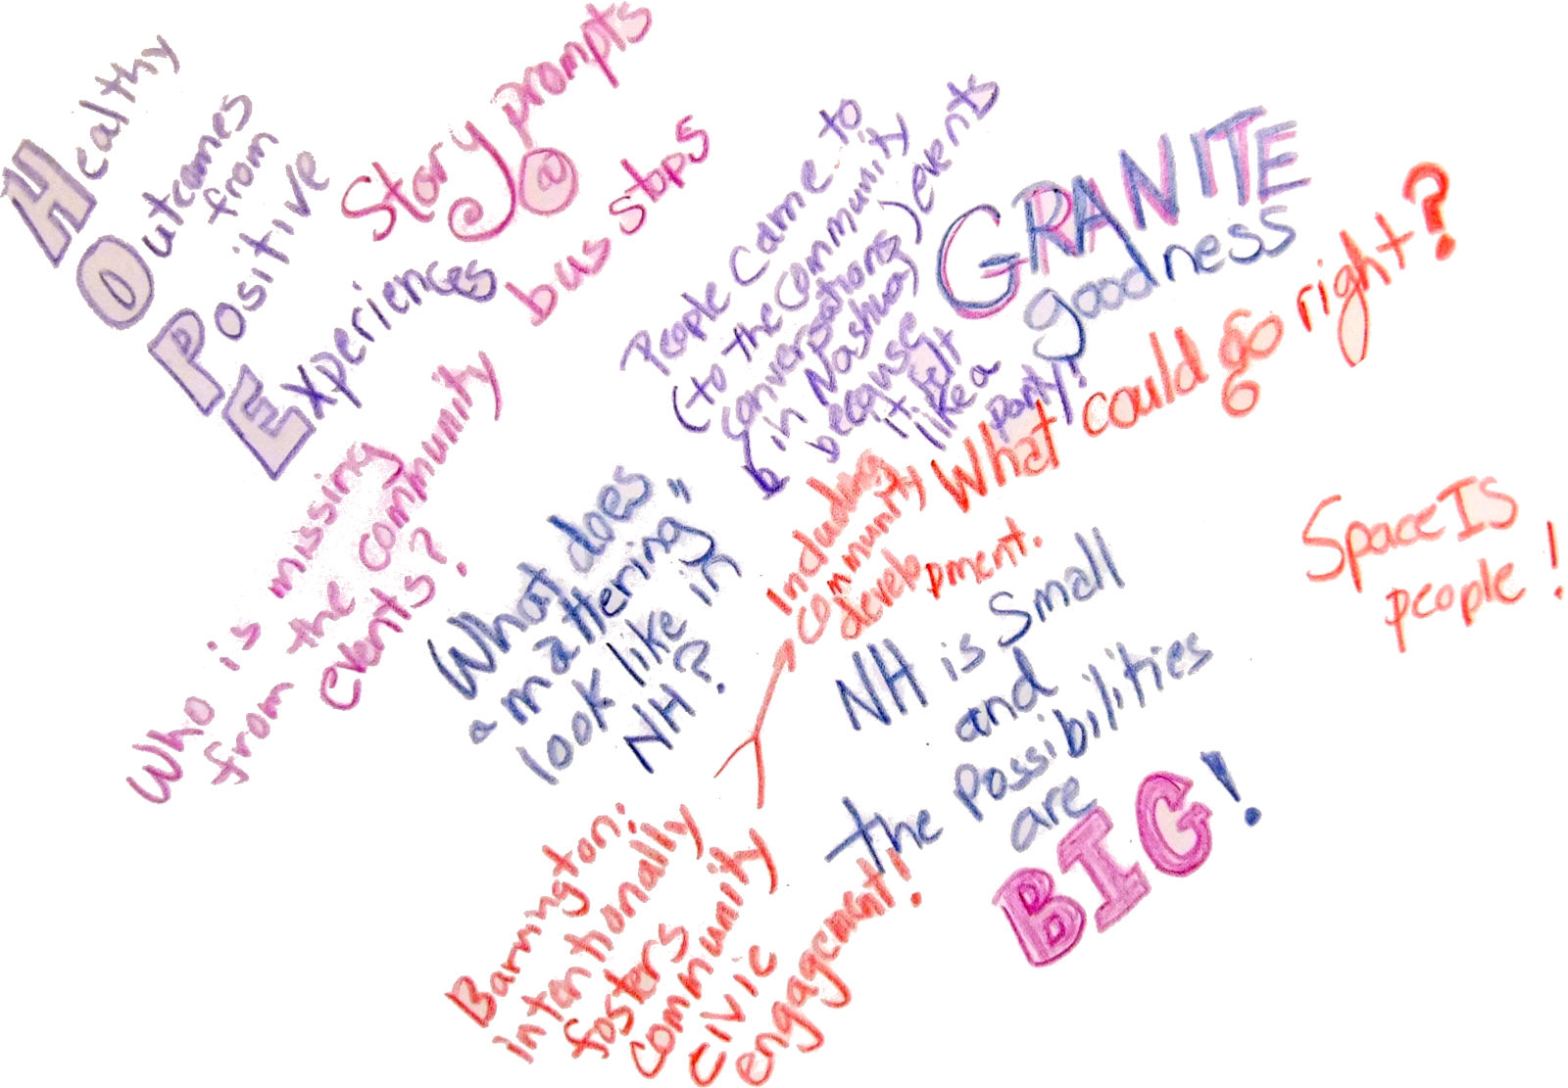 Healthy
Outcomes
from
Positive
Experiences
Story prompts
@
bus stops
People came to
(to the community
conversations) events
(in Nashua)
because
it felt
like a
party!
GRANITE
goodness
What could go right?
Who is missing
from the community
events?
What does
a mattering"
look like in
NH?
Including
community
development.
NH is Small
and
the Possibilities
are
BIG!
Space IS
people!
Barrington:
intentionally
fosters
community
civic
engagement!